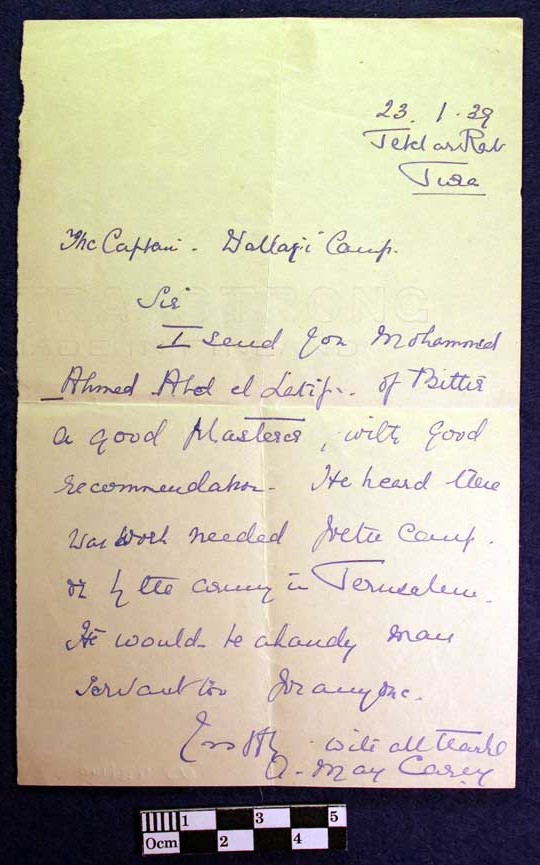 23. 1. 39
The Captain. Camp.
Sir
I send you Mohammed
Ahmed Abd el Latif. of Bittir
a good , with good
recommendation. He heard there
was work needed for the Camp.
or by the army in Jerusalem.
He would be a handy man
servant too for anyone.
with all thanks
A. May Carey
0cm 1 2 3 4 5